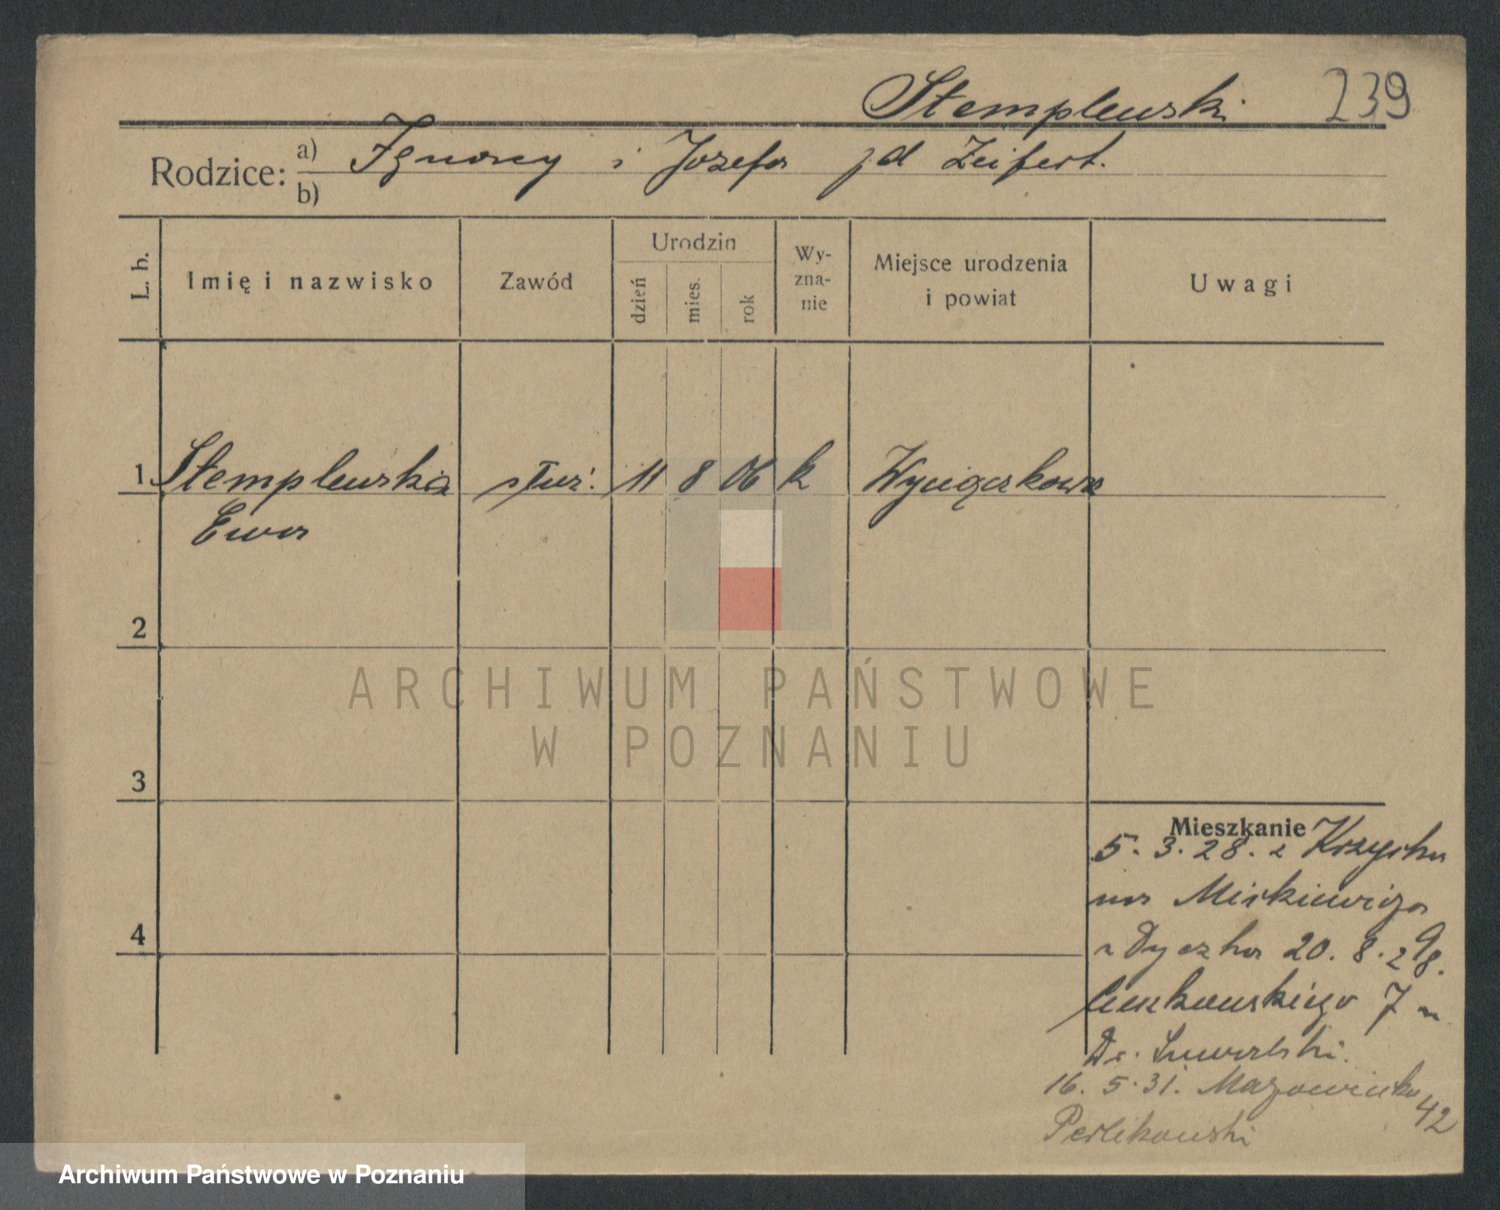 Stemplewski 239
Rodzice: a) Ignacy i Józefa z d Zeifert.
b)
L. b. Imię i nazwisko Zawód Urodzin dzień mies. rok Wy-zna-nie Miejsce urodzenia i powiat Uwagi
1 Stemplewska służ. 11 8 06 k Wyciążkowa
Ewa
2
ARCHIWUM PAŃSTWOWE
W POZNANIU
3
Mieszkanie
5. 3. 28. z Krzycka
na Mickiewicza
20. 8. 28.
7 u
Dr.
16. 5. 31. Mazowiecka 42
Perlikowski
4
Archiwum Państwowe w Poznaniu